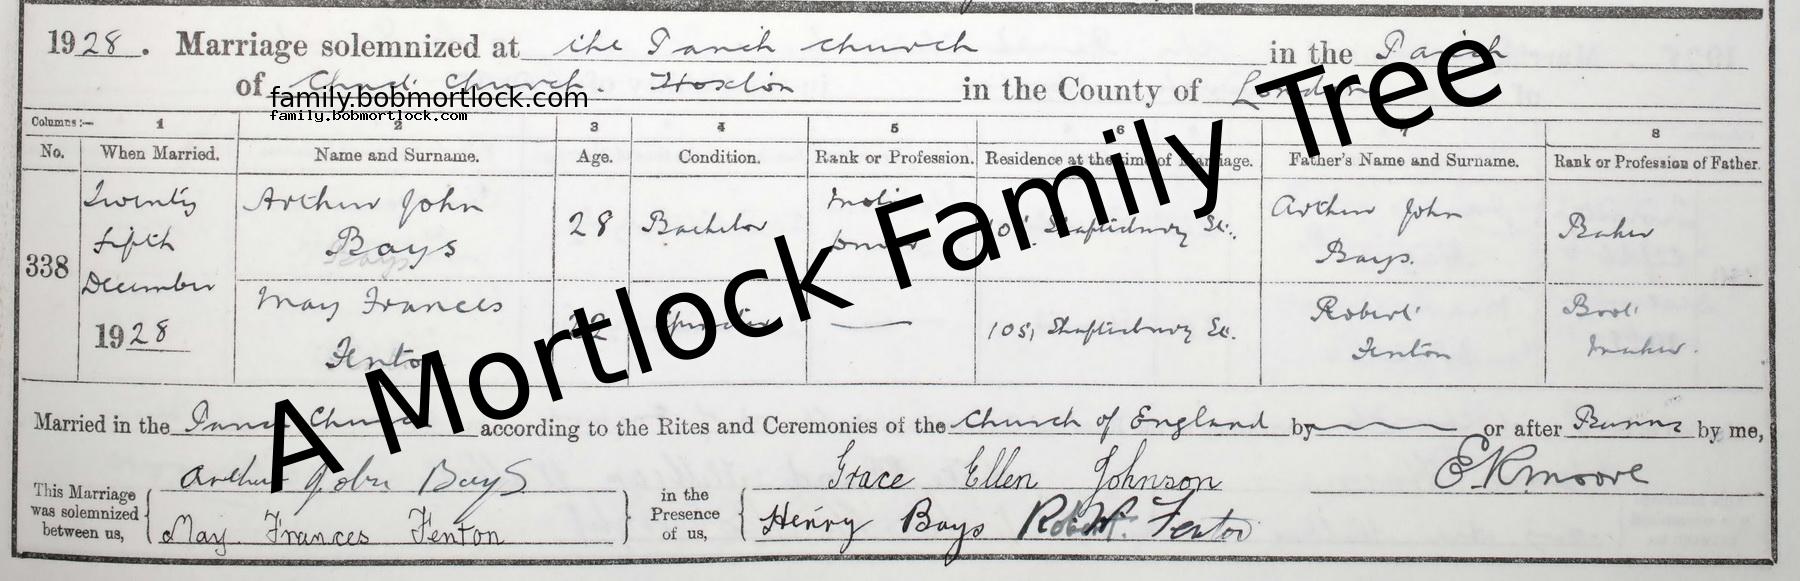 1928. Marriage solemnized at the Parish Church in the Parish
of Christ Church. Hoxton in the County of London
family.bobmortlock.com
family.bobmortlock.com
Columns:— 1 2 3 4 5 6 7 8
No. When Married. Name and Surname. Age. Condition. Rank or Profession. Residence at the time of Marriage. Father's Name and Surname. Rank or Profession of Father.
338 Twenty fifth December 1928 Arthur John Bays 28 Bachelor Motor 105, Shaftesbury St. Arthur John Bays. Baker
May Frances Fenton 22 Spinster — 105, Shaftesbury St. Robert Fenton Boot maker.
A Mortlock Family Tree
Married in the Parish Church according to the Rites and Ceremonies of the Church of England by — or after Banns by me,
Arthur John Bays Grace Ellen Johnson E R Moore
This Marriage was solemnized between us, in the Presence of us,
May Frances Fenton Henry Bays R. W. Fenton